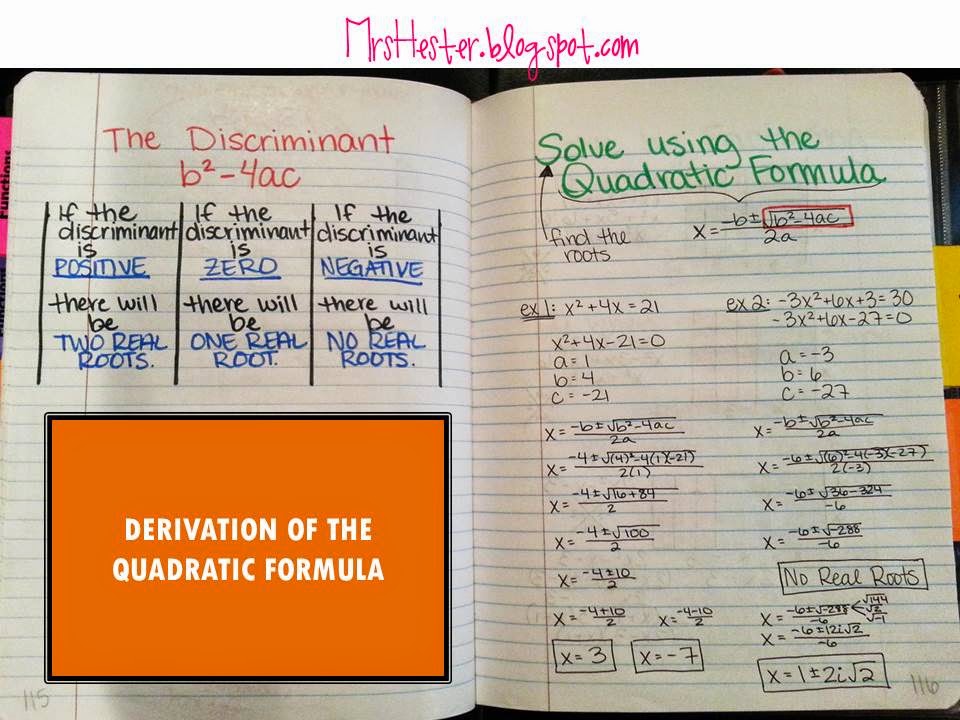 MrsHester.blogspot.com
Functions
The Discriminant
b²-4ac
If the discriminant is POSITIVE
there will be TWO REAL ROOTS.
If the discriminant is ZERO
there will be ONE REAL ROOT.
If the discriminant is NEGATIVE
there will be NO REAL ROOTS.
DERIVATION OF THE
QUADRATIC FORMULA
115
Solve using the
Quadratic Formula
find the
roots
x = (-b±√b²-4ac)/2a
ex 1: x²+4x=21
x²+4x-21=0
a=1
b=4
c=-21
x = (-b±√b²-4ac)/2a
x = (-4±√(4)²-4(1)(-21))/2(1)
x = (-4±√16+84)/2
x = (-4±√100)/2
x = (-4±10)/2
x = (-4+10)/2 x = (-4-10)/2
x=3 x=-7
ex 2: -3x²+6x+3=30
-3x²+6x-27=0
a=-3
b=6
c=-27
x = (-b±√b²-4ac)/2a
x = (-6±√(6)²-4(-3)(-27))/2(-3)
x = (-6±√36-324)/-6
x = (-6±√-288)/-6
No Real Roots
x = (-6±√-288)/-6 √144 √2 √-1
x = (-6±12i√2)/-6
x=1±2i√2
116